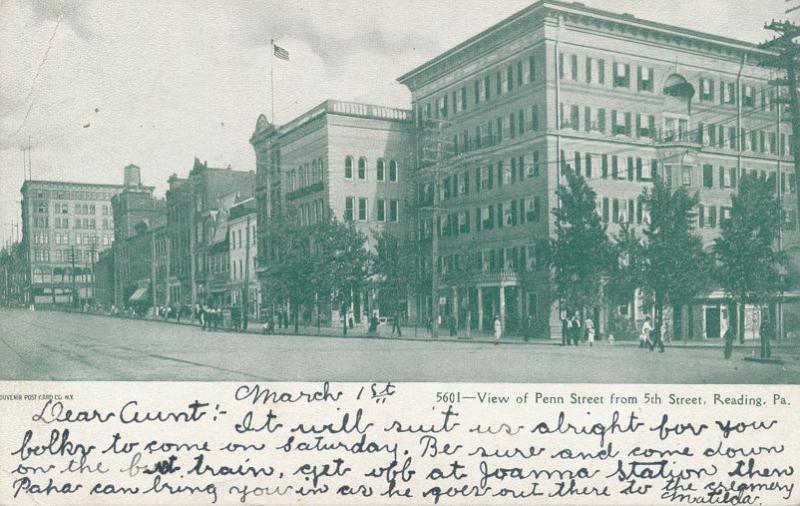 SOUVENIR POST CARD CO. N.Y.
March 1st
5601—View of Penn Street from 5th Street, Reading, Pa.
Dear Aunt:-
It will suit us alright for you
folks to come on Saturday. Be sure and come down
on the train, get off at Joanna Station then
Papa can bring you in as he goes out there to the creamery
Matilda.